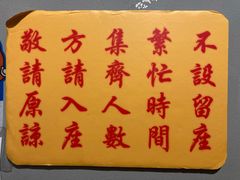 不設留座
繁忙時間
集齊人數
方請入座
敬請原諒